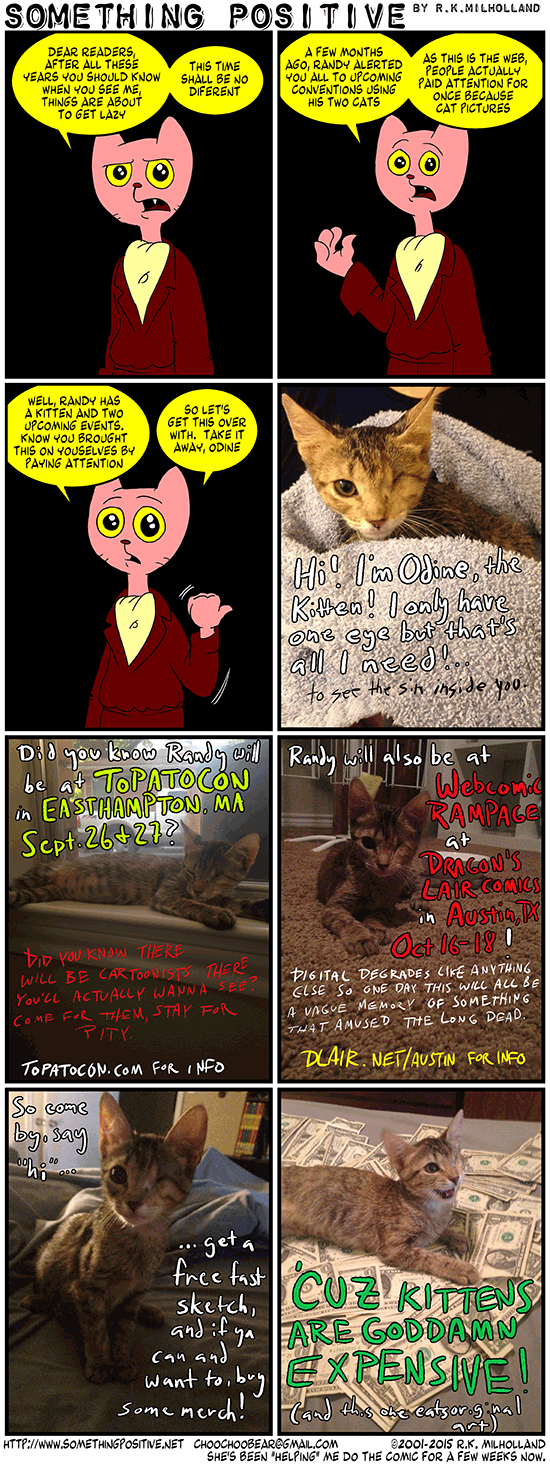 SOMETHING POSITIVE BY R.K.MILHOLLAND
DEAR READERS,
AFTER ALL THESE
YEARS YOU SHOULD KNOW
WHEN YOU SEE ME,
THINGS ARE ABOUT
TO GET LAZY
THIS TIME
SHALL BE NO
DIFERENT
A FEW MONTHS
AGO, RANDY ALERTED
YOU ALL TO UPCOMING
CONVENTIONS USING
HIS TWO CATS
AS THIS IS THE WEB,
PEOPLE ACTUALLY
PAID ATTENTION FOR
ONCE BECAUSE
CAT PICTURES
WELL, RANDY HAS
A KITTEN AND TWO
UPCOMING EVENTS.
KNOW YOU BROUGHT
THIS ON YOUSELVES BY
PAYING ATTENTION
SO LET'S
GET THIS OVER
WITH. TAKE IT
AWAY, ODINE
Hi! I'm Odine, the
Kitten! I only have
one eye but that's
all I need!...
to see the sin inside you.
Did you know Randy will
be at TOPATOCON
in EASTHAMPTON, MA
Sept. 26+27?
DID YOU KNOW THERE
WILL BE CARTOONISTS THERE
YOU'LL ACTUALLY WANNA SEE?
COME FOR THEM, STAY FOR
PITY.
TOPATOCON.COM FOR INFO
Randy will also be at
Webcomic
RAMPAGE
at
DRAGON'S
LAIR COMICS
in Austin, TX
Oct 16-18!
DIGITAL DEGRADES LIKE ANYTHING
ELSE SO ONE DAY THIS WILL ALL BE
A VAGUE MEMORY OF SOMETHING
THAT AMUSED THE LONG DEAD.
DLAIR.NET/AUSTIN FOR INFO
So come
by, say
"hi"...
... get a
free fast
sketch,
and if ya
can and
want to, buy
some merch!
'CUZ KITTENS
ARE GODDAMN
EXPENSIVE!
(and this one eats original
art)
HTTP://WWW.SOMETHINGPOSITIVE.NET CHOOCHOOBEAR@GMAIL.COM ©2001-2015 R.K. MILHOLLAND
SHE'S BEEN "HELPING" ME DO THE COMIC FOR A FEW WEEKS NOW.